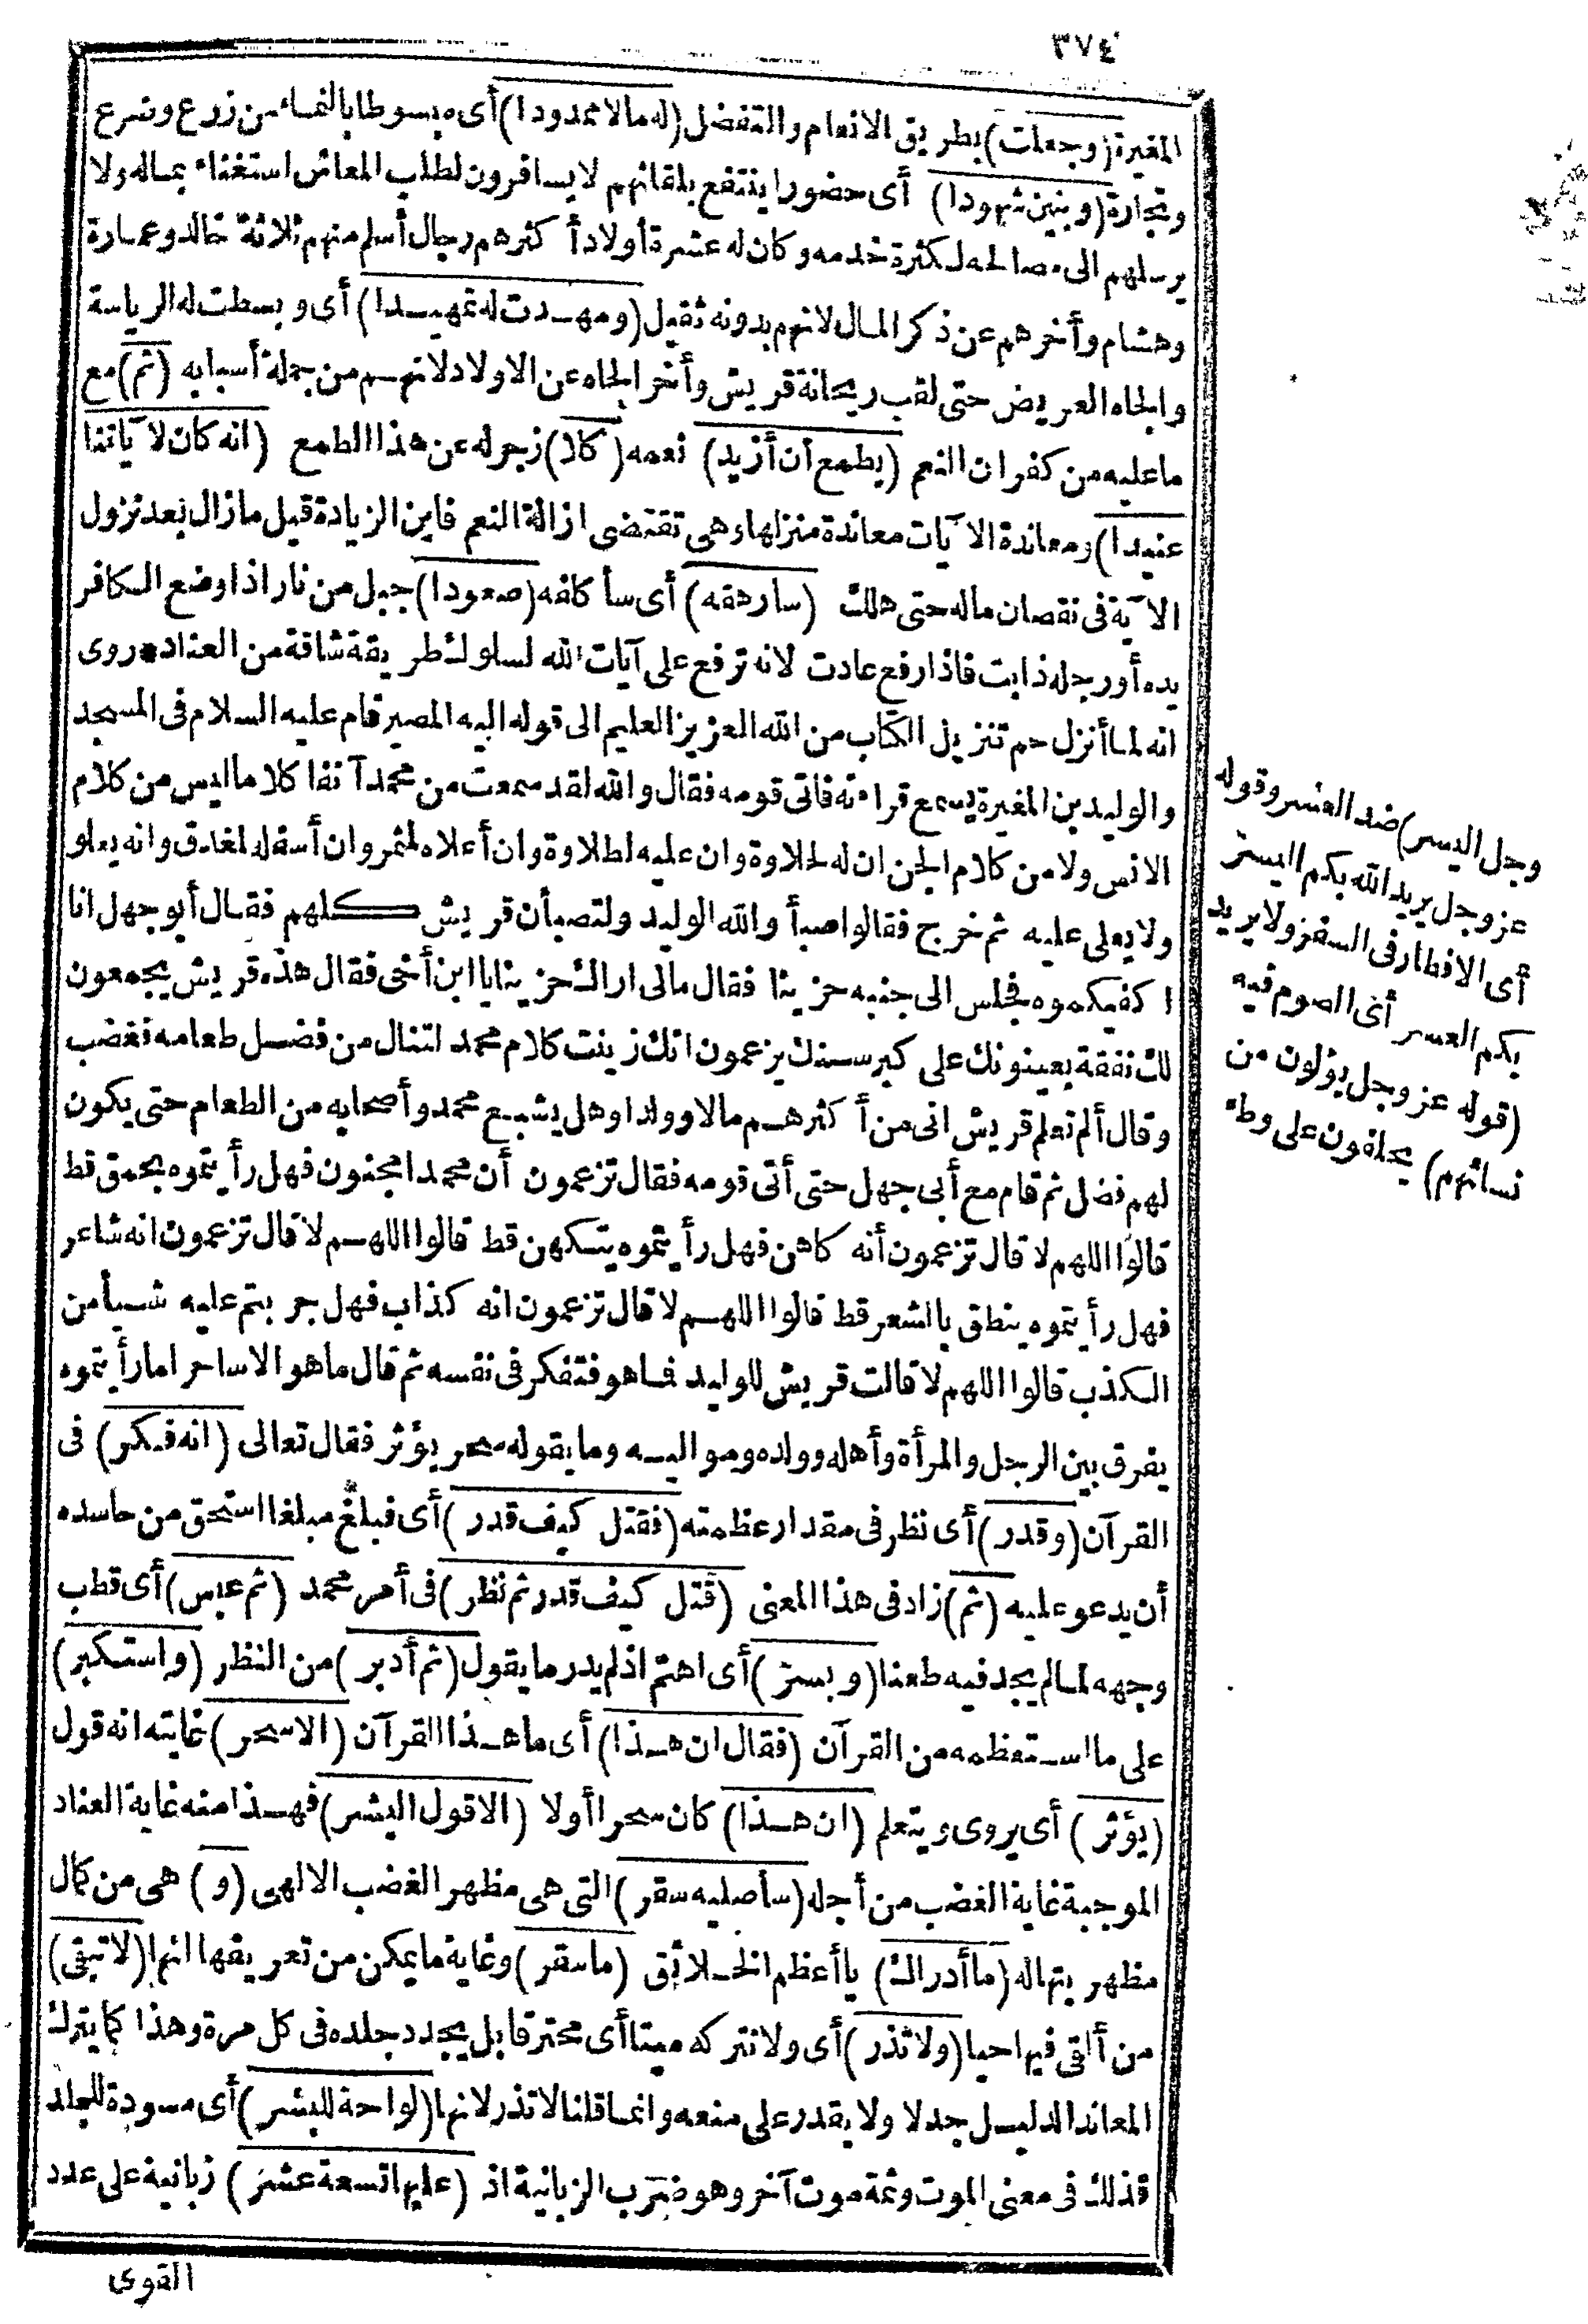 ٣٧٤
المغيرة (وجعلت) بطريق الانعام والتفضل (له مالا ممدودا) أى مبسوطا بالنماء من زرع وضرع
وتجارة (وبنين شهودا) أى حضورا ينتفع بلقائهم لا يسافرون لطلب المعاش استغناء بماله ولا
يرسلهم الى مصالحه لكثرة خدمه وكان له عشرة أولاد أكثرهم رجال أسلم منهم ثلاثة خالد وعمارة
وهشام وأخرهم عن ذكر المال لانهم بدونه ثقيل (ومهدت له تمهيدا) أى وبسطت له الرياسة
والجاه العريض حتى لقب ريحانة قريش وأخر الجاه عن الاولاد لانهم من جملة أسبابه (ثم) مع
ما عليه من كفران النعم (يطمع أن أزيد) نعمه (كلا) زجر له عن هذا الطمع (انه كان لآياتنا
عنيدا) ومعاندة الآيات معاندة منزلها وهى تقتضى ازالة النعم فاين الزيادة قيل ما زال بعد نزول
الآية فى نقصان ماله حتى هلك (سارهقه) أى سأكلفه (صعودا) جبل من نار اذا وضع الكافر
يده أو رجله ذابت فاذا رفع عادت لانه ترفع على آيات الله لسلوك طريقة شاقة من العناد * روى
انه لما أنزل حم تنزيل الكتاب من الله العزيز العليم الى قوله اليه المصير قام عليه السلام فى المسجد
والوليد بن المغيرة يسمع قراءته فاتى قومه فقال والله لقد سمعت من محمد آنفا كلاما ليس من كلام
الانس ولا من كلام الجن ان له لحلاوة وان عليه لطلاوة وان أعلاه لمثمر وان أسفله لمغدق وانه يعلو
ولا يعلى عليه ثم خرج فقالوا صبأ والله الوليد ولتصبأن قريش كلهم فقال أبو جهل انا
اكفيكموه فجلس الى جنبه حزينا فقال مالى اراك حزينا يا ابن أخى فقال هذه قريش يجمعون
لك نفقة يعينونك على كبر سنك يزعمون انك زينت كلام محمد لتنال من فضل طعامه فغضب
وقال ألم تعلم قريش انى من أكثرهم مالا وولدا وهل يشبع محمد وأصحابه من الطعام حتى يكون
لهم فضل ثم قام مع أبى جهل حتى أتى قومه فقال تزعمون أن محمدا مجنون فهل رأيتموه يحمق قط
قالوا اللهم لا قال تزعمون أنه كاهن فهل رأيتموه يتكهن قط قالوا اللهم لا قال تزعمون انه شاعر
فهل رأيتموه ينطق بالشعر قط قالوا اللهم لا قال تزعمون انه كذاب فهل جربتم عليه شيأ من
الكذب قالوا اللهم لا قالت قريش للوليد فما هو فتفكر فى نفسه ثم قال ما هو الا ساحر اما رأيتموه
يفرق بين الرجل والمرأة وأهله وولده ومواليه وما يقوله سحر يؤثر فقال تعالى (انه فكر) فى
القرآن (وقدر) أى نظر فى مقدار عظمته (فقتل كيف قدر) أى فبلغ مبلغا استحق من حاسده
أن يدعو عليه (ثم) زاد فى هذا المعنى (قتل كيف قدر ثم نظر) فى أمر محمد (ثم عبس) أى قطب
وجهه لما لم يجد فيه طعنا (وبسر) أى اهتم اذ لم يدر ما يقول (ثم أدبر) من النظر (واستكبر)
على ما استعظمه من القرآن (فقال ان هذا) أى ما هذا القرآن (الا سحر) غايته انه قول
(يؤثر) أى يروى ويتعلم (ان هذا) كان سحرا أولا (الا قول البشر) فهذا منه غاية العناد
الموجبة غاية الغضب من أجله (سأصليه سقر) التى هى مظهر الغضب الالهى (و) هى من كمال
مظهريتها له (ما أدراك) يا أعظم الخلائق (ما سقر) وغاية ما يمكن من تعريفها انها (لا تبقى)
من ألقى فيها حيا (ولا تذر) أى ولا تتركه ميتا أى محترقا بل يجدد جلده فى كل مرة وهذا كما يترك
المعاند الدليل جدلا ولا يقدر على منعه وانما قلنا لا تذر لانها (لواحة للبشر) أى مسودة للجلد
فذلك فى معنى الموت وثمة موت آخر وهو ضرب الزبانية اذ (عليها تسعة عشر) زبانية على عدد
القوى
وجل اليسر) ضد العسر وقوله
عز وجل يريد الله بكم اليسر
أى الافطار فى السفر ولا يريد
بكم العسر أى الصوم فيه
(قوله عز وجل يؤلون من
نسائهم) يحلفون على وطء